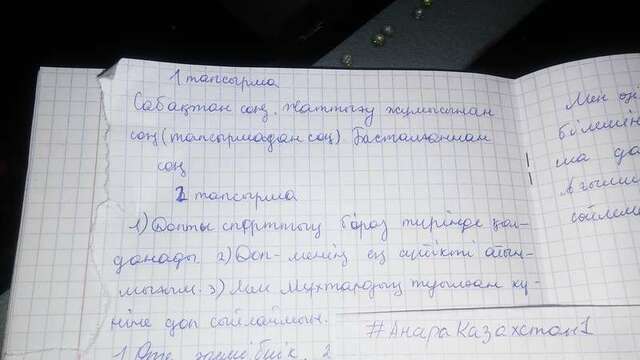 1 тапсырма
Сабақтан соң. Жаттығу жұмысынан
соң (тапсырмадан соң). Басталғаннан
соң
2 тапсырма
1) Допты спорттың біраз түрінде қол-
данады. 2) Доп - менің ең сүйікті ойын-
шығым. 3) Мен Мұхтардың туылған кү-
ніне доп сыйлаймын.
1 Өте
Мен
білемін
ма
сөйлем
#АнараКазахстан1